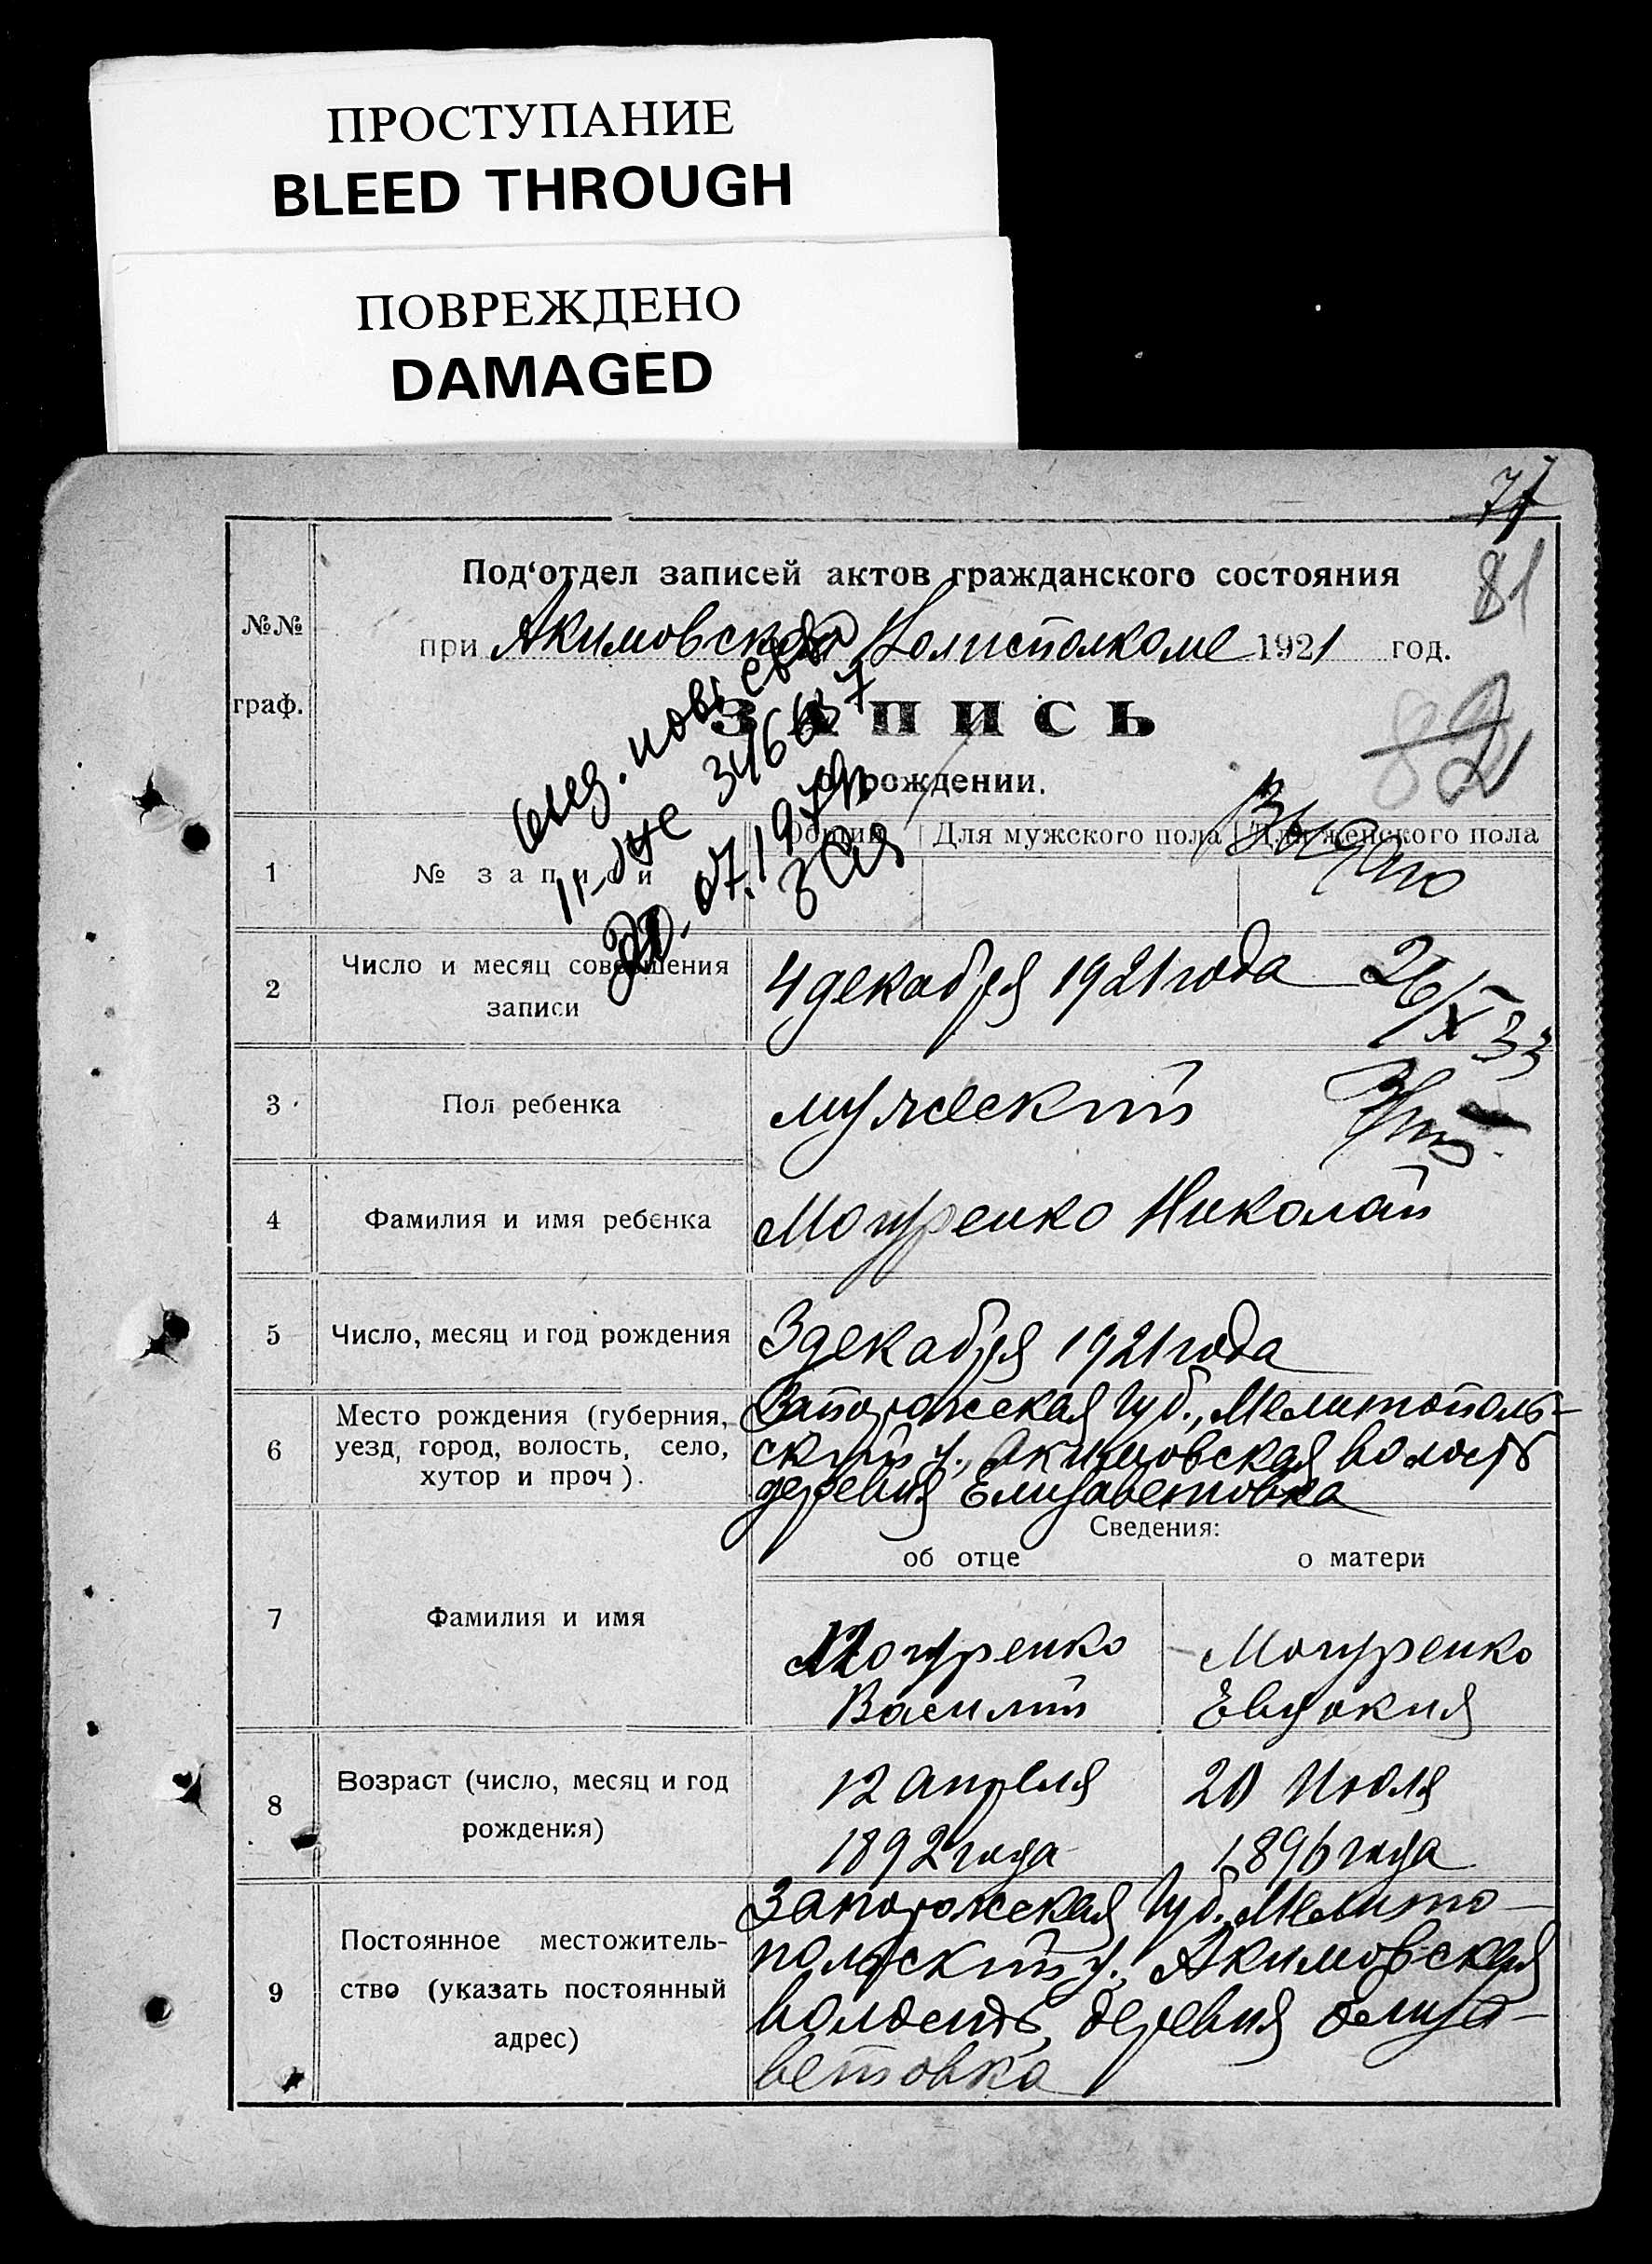 ПРОСТУПАНИЕ
BLEED THROUGH
ПОВРЕЖДЕНО
DAMAGED
81
Под‘отдел записей актов гражданского состояния
№№
граф.
при Акимовском Волисполкоме 1921 год.
ЗАПИСЬ
о рождении.
Выдано
Общий Для мужского пола Для женского пола
1 № записи
2 Число и месяц совершения
записи
4 декабря 1921 года
26/X 33
3 Пол ребенка мужеский
4 Фамилия и имя ребенка Могуренко Николай
5 Число, месяц и год рождения 3 декабря 1921 года
6 Место рождения (губерния,
уезд, город, волость, село,
хутор и проч).
Запорожская Губ., Мелитополь-
ский у., Акимовская волость
деревня Елизаветовка
Сведения:
об отце о матери
7 Фамилия и имя
Могуренко Могуренко
Василий Евдокия
8 Возраст (число, месяц и год
рождения)
12 апреля 20 Июля
1892 года 1896 года
9 Постоянное местожитель-
ство (указать постоянный
адрес)
Запорожская Губ. Мелито-
польский у., Акимовская
волость, деревня Елиза-
ветовка